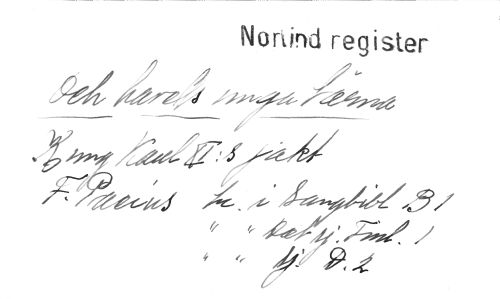 Norlind register
Och havets unga tärna
Kung Karl XI:s jakt
F. Pacius tr. i Sangbibl B 1
" " Det sj. Finl. 1
" " sj. D. 2